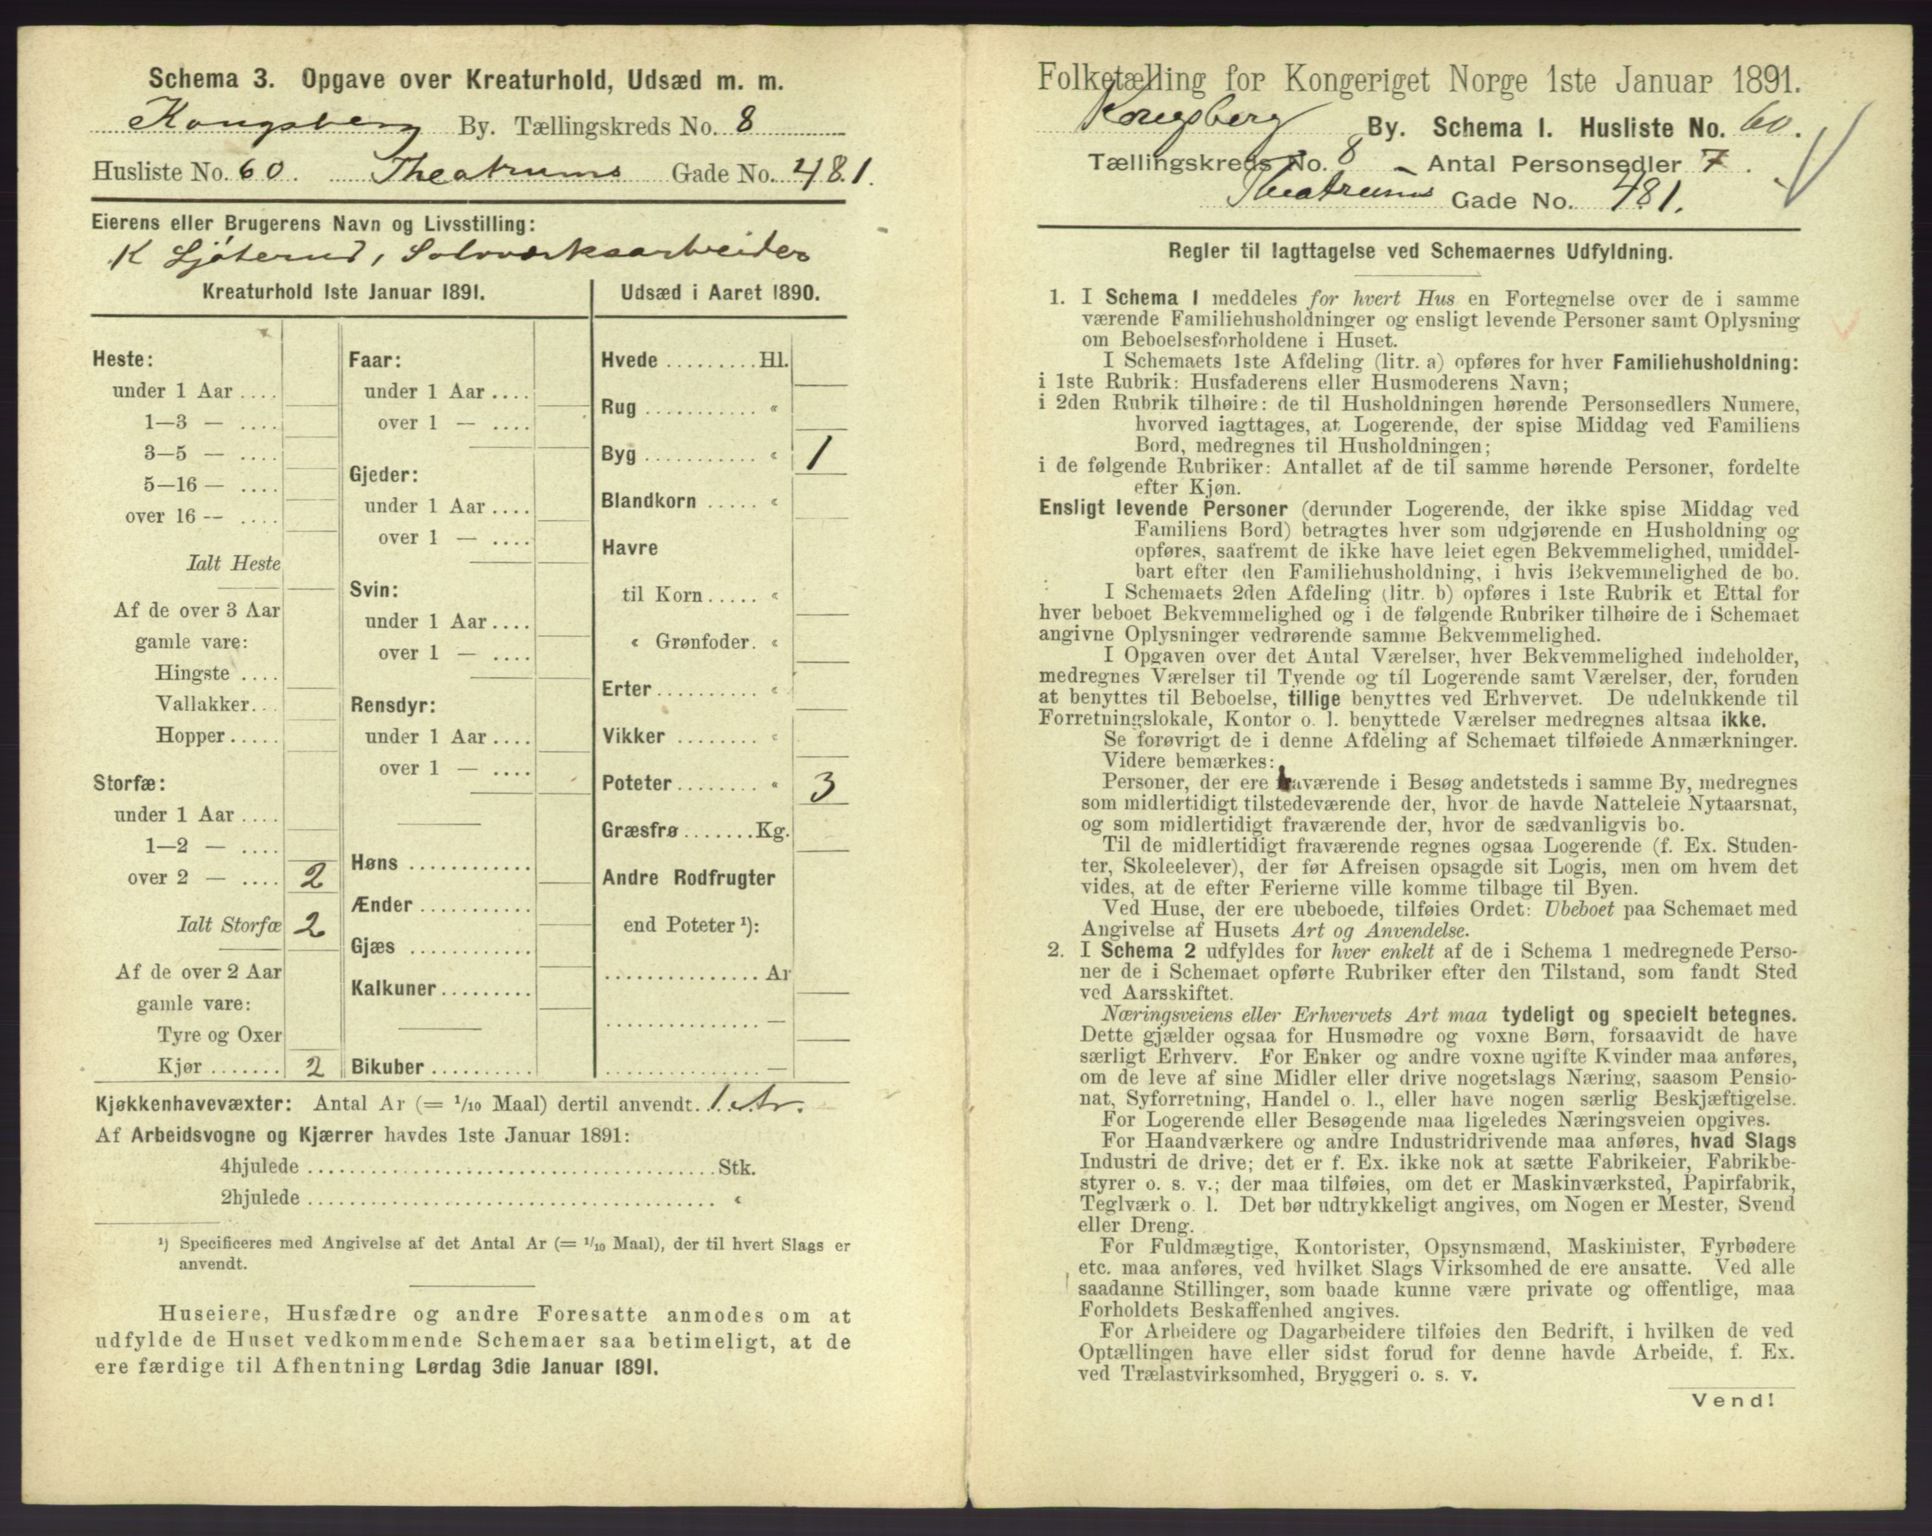 Schema 3. Opgave over Kreaturhold, Udsæd m. m.
Kongsberg By. Tællingskreds No. 8
Husliste No. 60. Theatrums Gade No. 481.
Eierens eller Brugerens Navn og Livsstilling:
K Ljøterud, Sølvværksarbeider
Kreaturhold 1ste Januar 1891.
Heste:
under 1 Aar ....
1—3 — ....
3—5 — ....
5—16 — ....
over 16 -- ....
Ialt Heste
Af de over 3 Aar
gamle vare:
Hingste ....
Vallakker...
Hopper.....
Storfæ:
under 1 Aar ....
1—2 — ....
over 2 — .... 2
Ialt Storfæ 2
Af de over 2 Aar
gamle vare:
Tyre og Oxer
Kjør ....... 2
Faar:
under 1 Aar ....
over 1 — ....
Gjeder:
under 1 Aar ....
over 1 — ....
Svin:
under 1 Aar ....
over 1 — ....
Rensdyr:
under 1 Aar ....
over 1 — ....
Høns ...........
Ænder ..........
Gjæs ...........
Kalkuner.........
Bikuber .........
Udsæd i Aaret 1890.
Hvede .........Hl.
Rug ........... «
Byg ........... « 1
Blandkorn ..... «
Havre
til Korn..... «
« Grønfoder. «
Erter.......... «
Vikker ........ «
Poteter........ « 3
Græsfrø.......Kg.
Andre Rodfrugter
end Poteter ¹):
...............Ar
...............—
...............—
Kjøkkenhavevæxter: Antal Ar (= 1/10 Maal) dertil anvendt. 1 Ar.
Af Arbeidsvogne og Kjærrer havdes 1ste Januar 1891:
4hjulede ......................................Stk.
2hjulede ...................................... «
¹) Specificeres med Angivelse af det Antal Ar (= 1/10 Maal), der til hvert Slags er
anvendt.
Huseiere, Husfædre og andre Foresatte anmodes om at
udfylde de Huset vedkommende Schemaer saa betimeligt, at de
ere færdige til Afhentning Lørdag 3die Januar 1891.
Folketælling for Kongeriget Norge 1ste Januar 1891.
Kongsberg By. Schema 1. Husliste No. 60.
Tællingskreds No. 8 - Antal Personsedler 7.
Theatrums Gade No. 481.
Regler til Iagttagelse ved Schemaernes Udfyldning.
1. I Schema 1 meddeles for hvert Hus en Fortegnelse over de i samme
værende Familiehusholdninger og ensligt levende Personer samt Oplysning
om Beboelsesforholdene i Huset.
I Schemaets 1ste Afdeling (litr. a) opføres for hver Familiehusholdning:
i 1ste Rubrik: Husfaderens eller Husmoderens Navn;
i 2den Rubrik tilhøire: de til Husholdningen hørende Personsedlers Numere,
hvorved iagttages, at Logerende, der spise Middag ved Familiens
Bord, medregnes til Husholdningen;
i de følgende Rubriker: Antallet af de til samme hørende Personer, fordelte
efter Kjøn.
Ensligt levende Personer (derunder Logerende, der ikke spise Middag ved
Familiens Bord) betragtes hver som udgjørende en Husholdning og
opføres, saafremt de ikke have leiet egen Bekvemmelighed, umiddel-
bart efter den Familiehusholdning, i hvis Bekvemmelighed de bo.
I Schemaets 2den Afdeling (litr. b) opføres i 1ste Rubrik et Ettal for
hver beboet Bekvemmelighed og i de følgende Rubriker tilhøire de i Schemaet
angivne Oplysninger vedrørende samme Bekvemmelighed.
I Opgaven over det Antal Værelser, hver Bekvemmelighed indeholder,
medregnes Værelser til Tyende og til Logerende samt Værelser, der, foruden
at benyttes til Beboelse, tillige benyttes ved Erhvervet. De udelukkende til
Forretningslokale, Kontor o. l. benyttede Værelser medregnes altsaa ikke.
Se forøvrigt de i denne Afdeling af Schemaet tilføiede Anmærkninger.
Videre bemærkes:
Personer, der ere fraværende i Besøg andetsteds i samme By, medregnes
som midlertidigt tilstedeværende der, hvor de havde Natteleie Nytaarsnat,
og som midlertidigt fraværende der, hvor de sædvanligvis bo.
Til de midlertidigt fraværende regnes ogsaa Logerende (f. Ex. Studen-
ter, Skoleelever), der før Afreisen opsagde sit Logis, men om hvem det
vides, at de efter Ferierne ville komme tilbage til Byen.
Ved Huse, der ere ubeboede, tilføies Ordet: Ubeboet paa Schemaet med
Angivelse af Husets Art og Anvendelse.
2. I Schema 2 udfyldes for hver enkelt af de i Schema 1 medregnede Perso-
ner de i Schemaet opførte Rubriker efter den Tilstand, som fandt Sted
ved Aarsskiftet.
Næringsveiens eller Erhvervets Art maa tydeligt og specielt betegnes.
Dette gjælder ogsaa for Husmødre og voxne Børn, forsaavidt de have
særligt Erhverv. For Enker og andre voxne ugifte Kvinder maa anføres,
om de leve af sine Midler eller drive nogetslags Næring, saasom Pensio-
nat, Syforretning, Handel o. l., eller have nogen særlig Beskjæftigelse.
For Logerende eller Besøgende maa ligeledes Næringsveien opgives.
For Haandværkere og andre Industridrivende maa anføres, hvad Slags
Industri de drive; det er f. Ex. ikke nok at sætte Fabrikeier, Fabrikbe-
styrer o. s. v.; der maa tilføies, om det er Maskinværksted, Papirfabrik,
Teglværk o. l. Det bør udtrykkeligt angives, om Nogen er Mester, Svend
eller Dreng.
For Fuldmægtige, Kontorister, Opsynsmænd, Maskinister, Fyrbødere
etc. maa anføres, ved hvilket Slags Virksomhed de ere ansatte. Ved alle
saadanne Stillinger, som baade kunne være private og offentlige, maa
Forholdets Beskaffenhed angives.
For Arbeidere og Dagarbeidere tilføies den Bedrift, i hvilken de ved
Optællingen have eller sidst forud for denne havde Arbeide, f. Ex.
ved Trælastvirksomhed, Bryggeri o. s. v.
Vend!